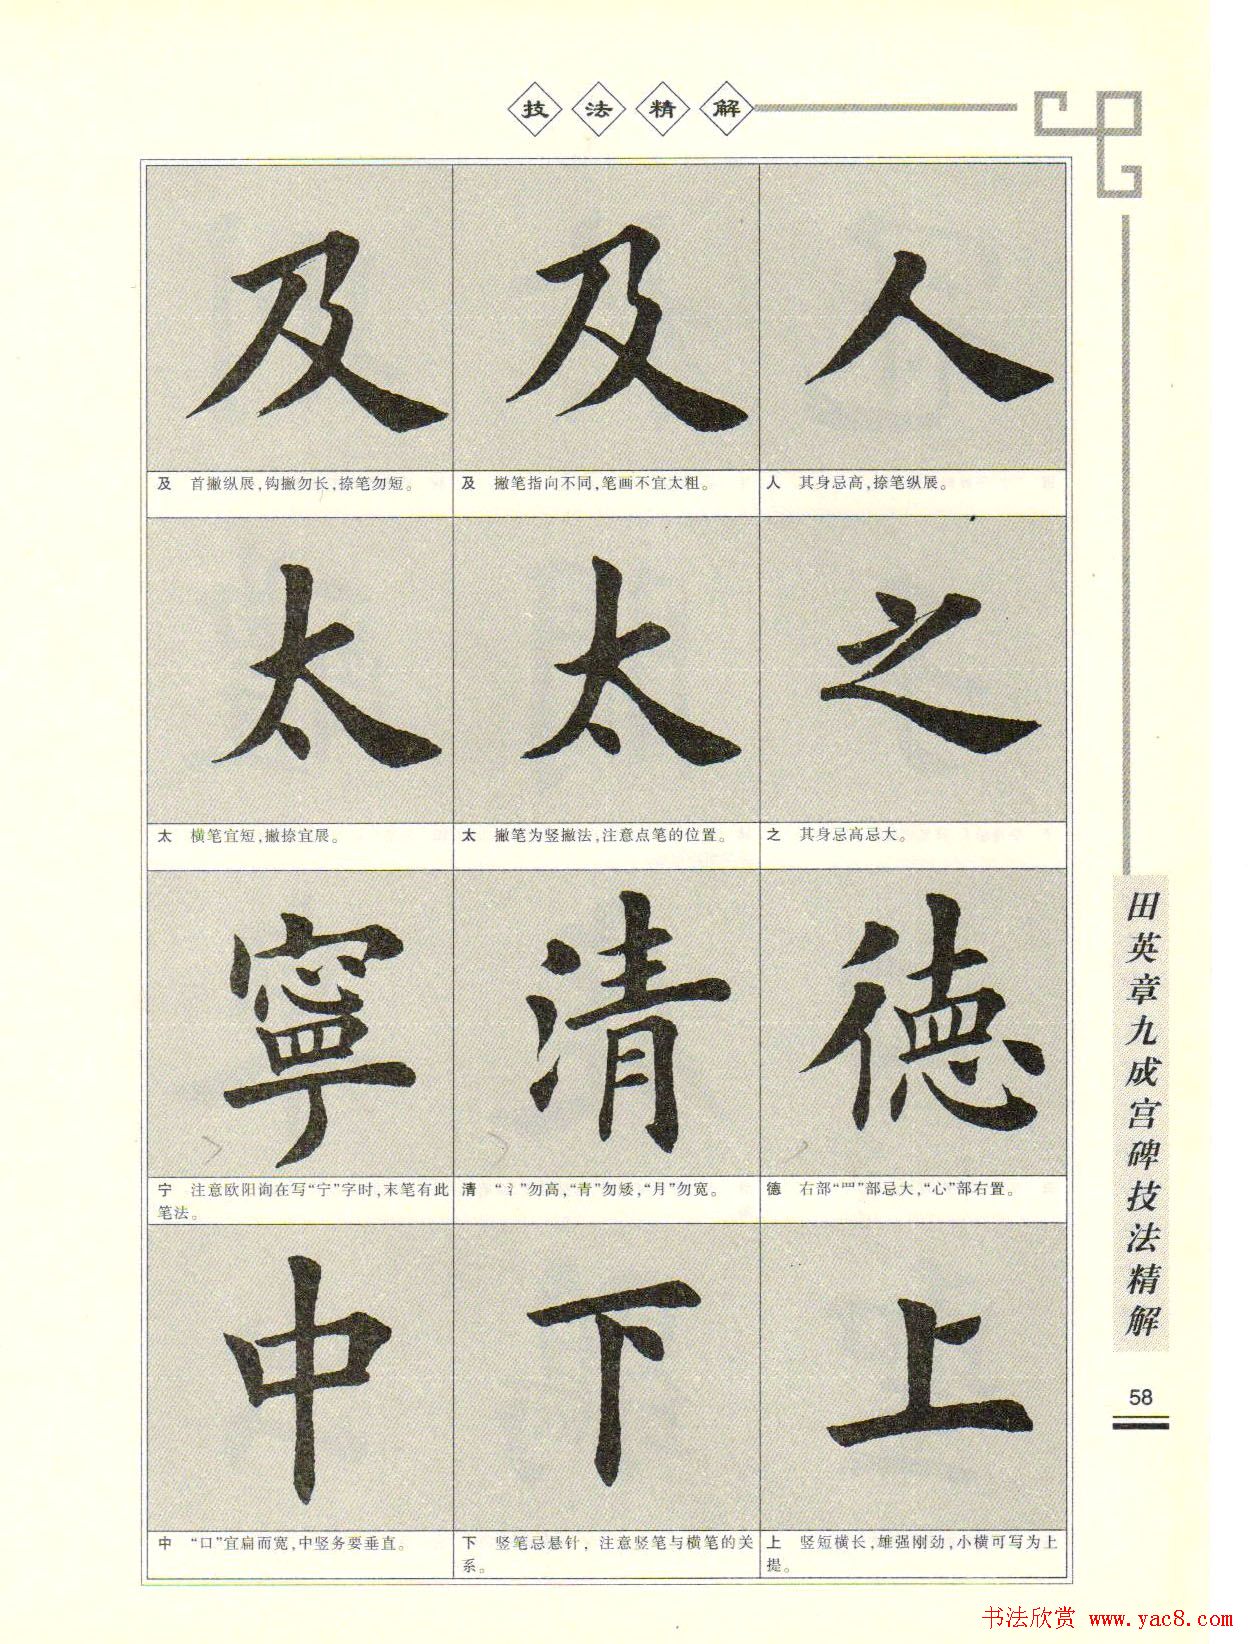 技法精解
及 及 人
及 首撇纵展,钩撇勿长,捺笔勿短。
及 撇笔指向不同,笔画不宜太粗。
人 其身忌高,捺笔纵展。
太 太 之
太 横笔宜短,撇捺宜展。
太 撇笔为竖撇法,注意点笔的位置。
之 其身忌高忌大。
寧 清 德
宁 注意欧阳询在写“宁”字时,末笔有此
笔法。
清 “氵”勿高,“青”勿矮,“月”勿宽。
德 右部“罒”部忌大,“心”部右置。
中 下 上
中 “口”宜扁而宽,中竖务要垂直。
下 竖笔忌悬针，注意竖笔与横笔的关
系。
上 竖短横长,雄强刚劲,小横可写为上
提。
田英章九成宫碑技法精解
58
书法欣赏 www.yac8.com